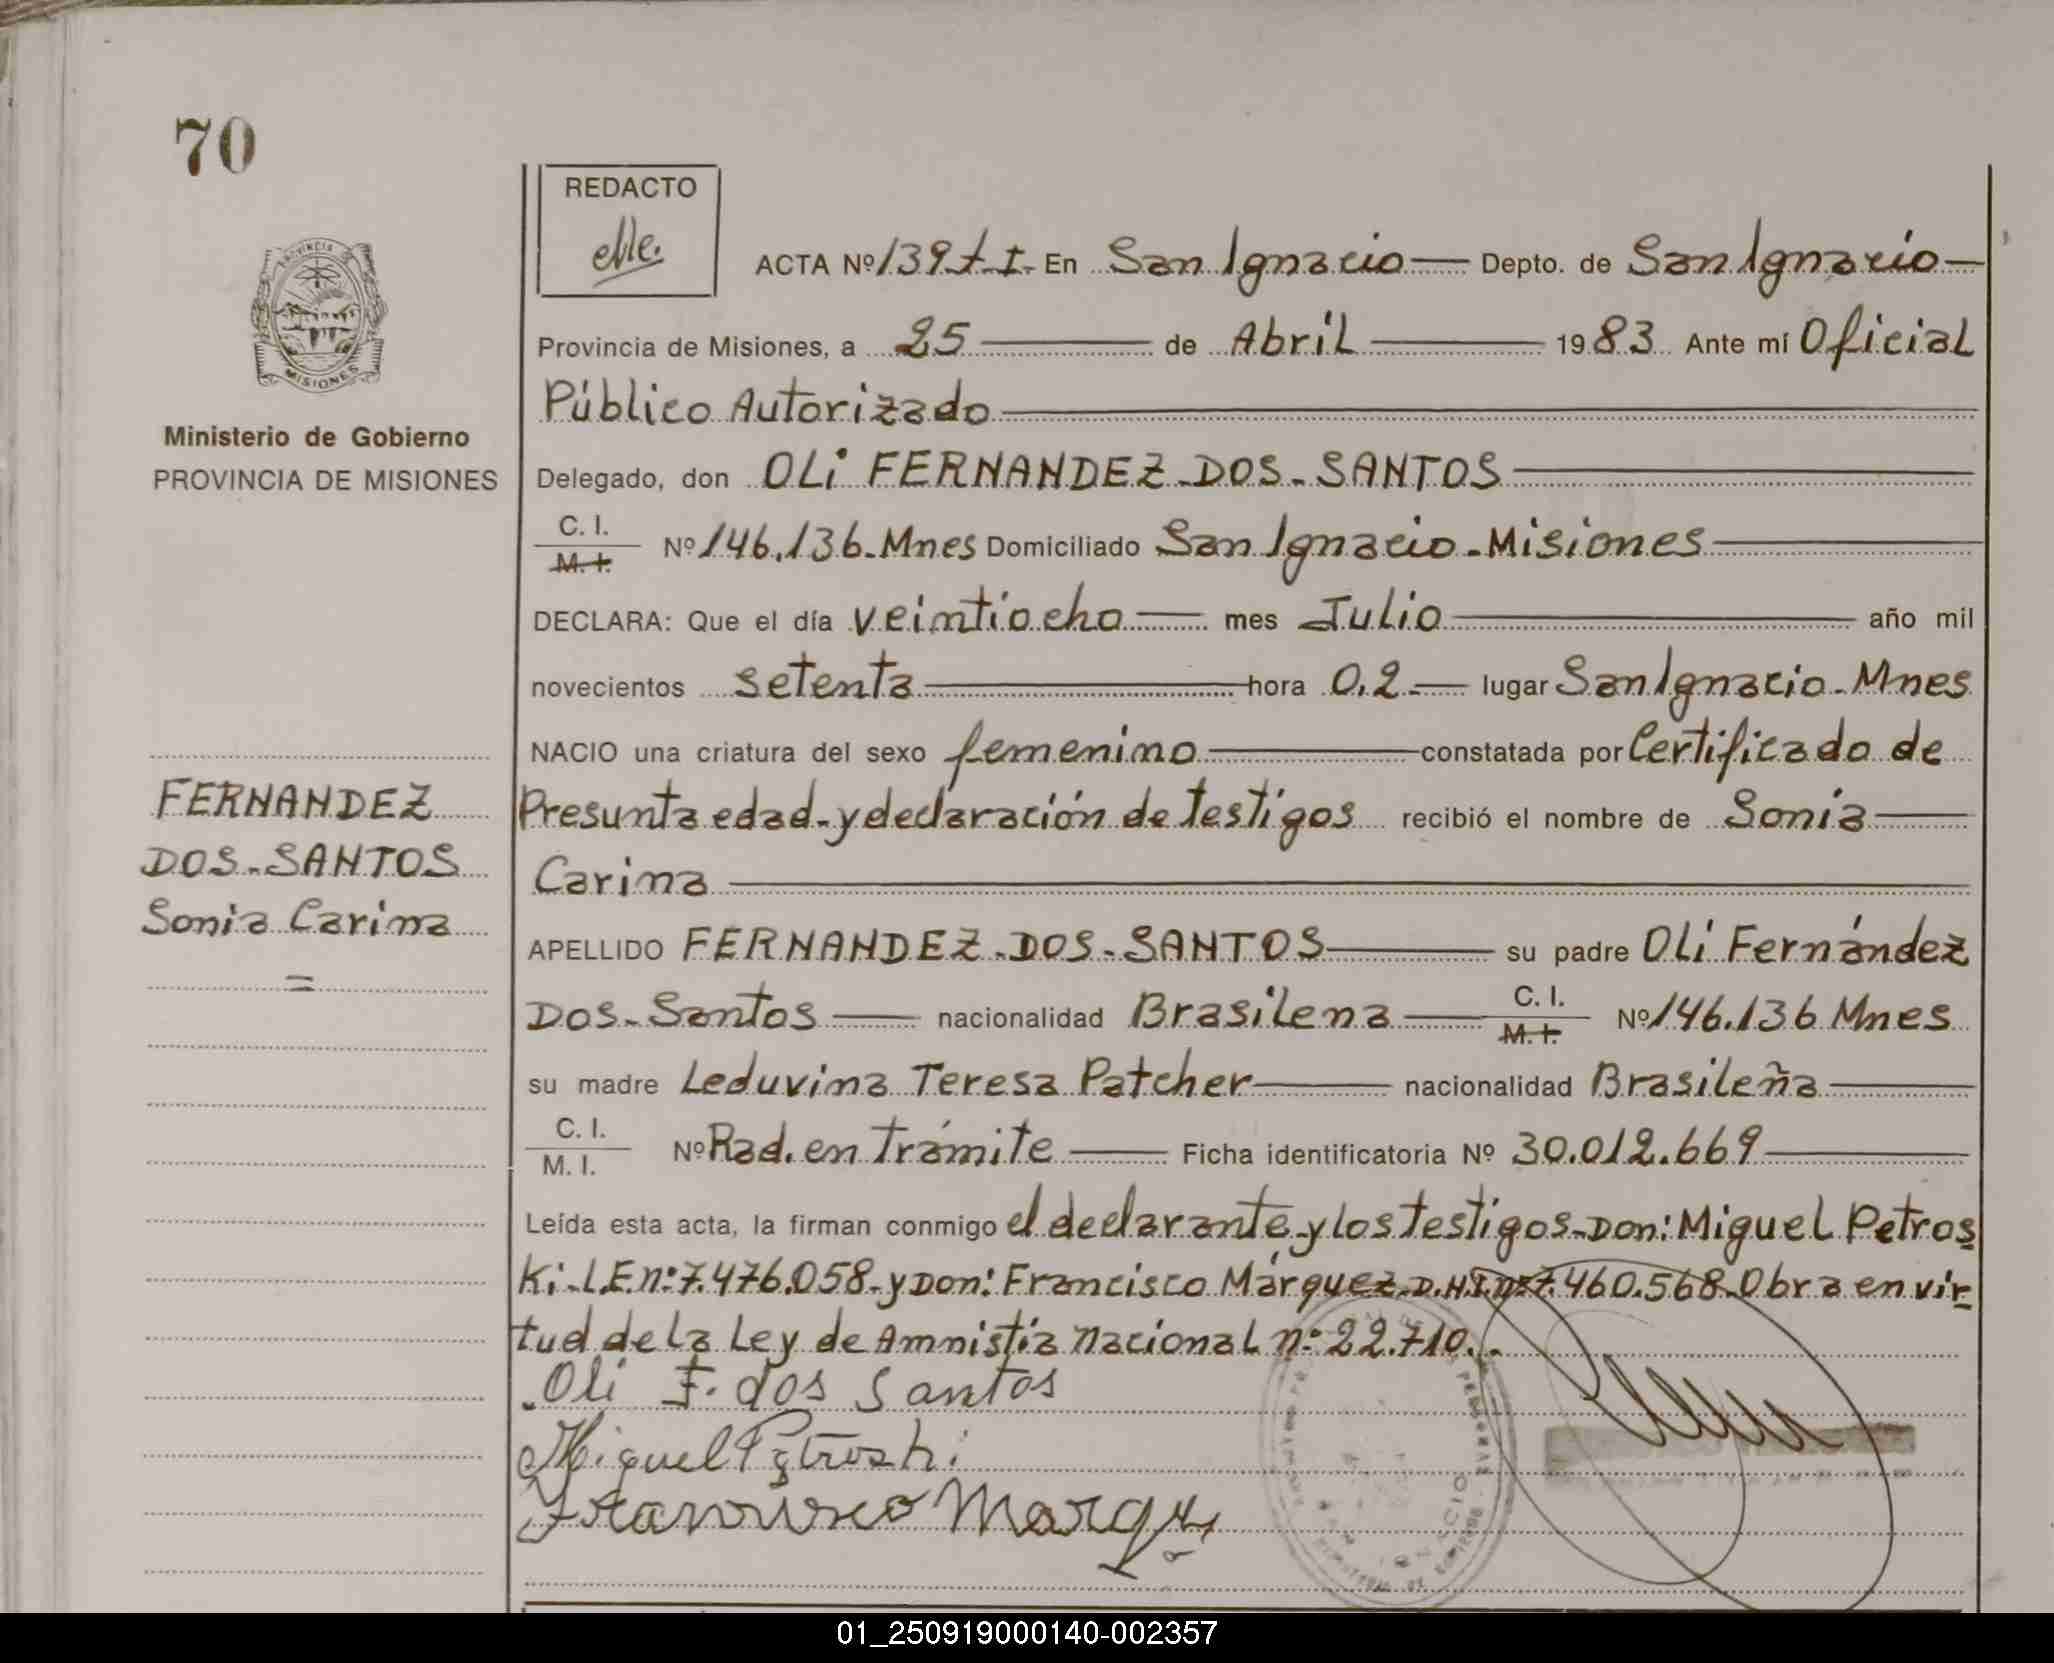 70
REDACTO
ACTA Nº 139 T.I. En San Ignacio Depto. de San Ignacio
Provincia de Misiones, a 25 de Abril 1983 Ante mí Oficial
Público Autorizado
PROVINCIA
MISIONES
Ministerio de Gobierno
PROVINCIA DE MISIONES
Delegado, don OLi FERNANDEZ-DOS-SANTOS
C. I.
M. I. Nº 146.136-Mnes Domiciliado San Ignacio-Misiones
DECLARA: Que el día veintiocho mes Julio año mil
novecientos setenta hora 0,2.- lugar San Ignacio-Mnes
NACIO una criatura del sexo femenino constatada por Certificado de
Presunta edad-y declaración de testigos recibió el nombre de Sonia
Carina
FERNANDEZ
DOS-SANTOS
Sonia Carina
APELLIDO FERNANDEZ-DOS-SANTOS su padre Oli Fernández
Dos-Santos nacionalidad Brasilena C. I.
M. I. Nº 146.136 Mnes
su madre Leduvina Teresa Patcher nacionalidad Brasileña
C. I.
M. I. Nº Rad. en Trámite Ficha identificatoria Nº 30.012.669
Leída esta acta, la firman conmigo el declarante-y los testigos-Don: Miguel Petros
Ki-L.E.nº:7.476.058-y Don: Francisco Márquez-D.N.I.nº7.460.568-Obra en vir
tud de la Ley de Amnistía Nacional nº 22.710..
Oli F. dos Santos
Miguel Petroski
Francisco Marquez
01_250919000140-002357